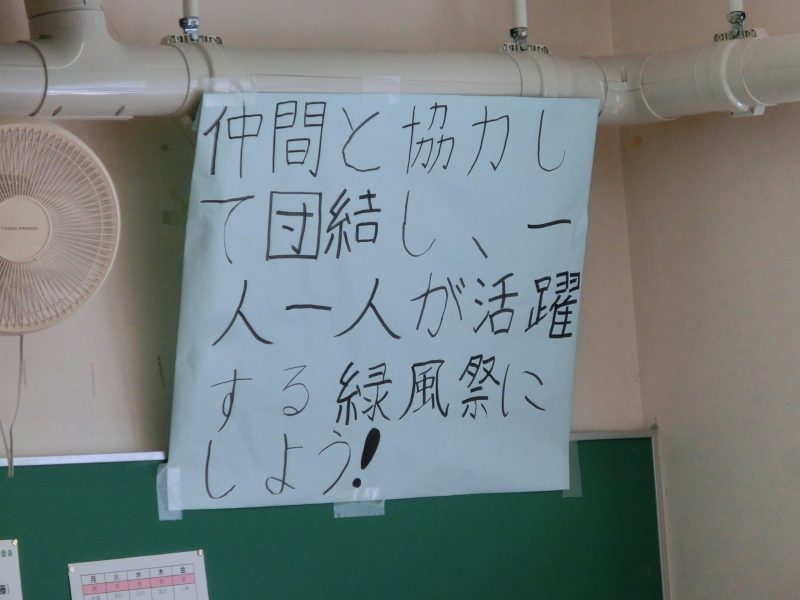 仲間と協力し
て団結し、一
人一人が活躍
する緑風祭に
しよう!
月 火 水 木 金